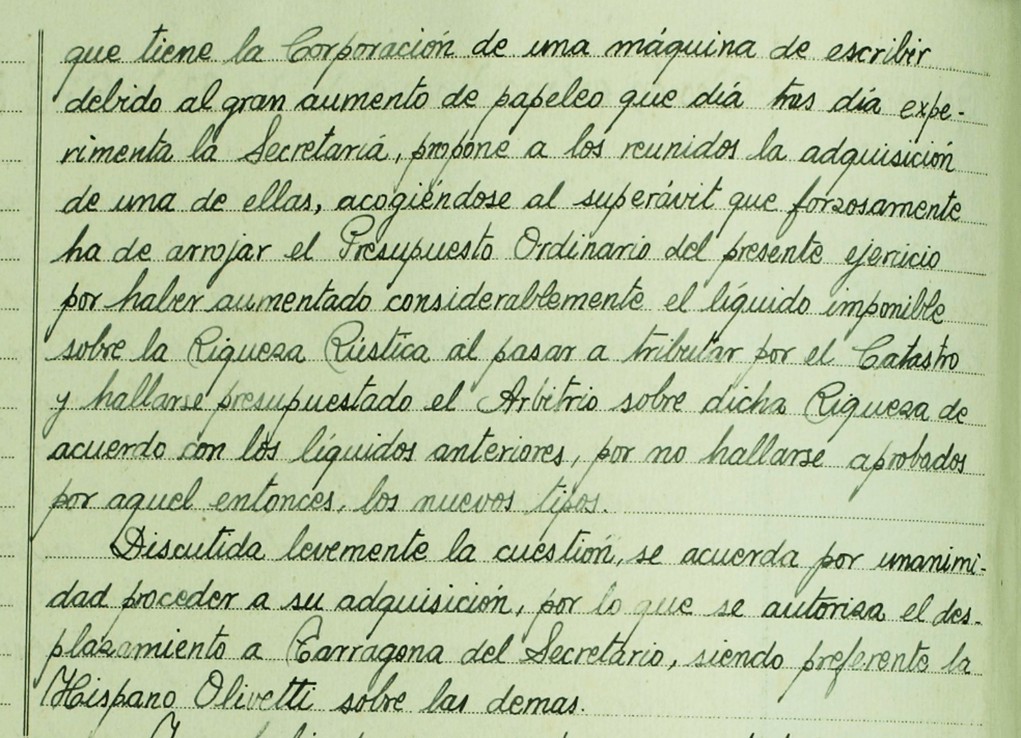 que tiene la Corporación de una máquina de escribir
debido al gran aumento de papeleo que día tras día expe-
rimenta la Secretaría, propone a los reunidos la adquisición
de una de ellas, acogiéndose al superávit que forzosamente
ha de arrojar el Presupuesto Ordinario del presente ejercicio
por haber aumentado considerablemente el líquido imponible
sobre la Riqueza Rústica al pasar a tributar por el Catastro
y hallarse presupuestado el Arbitrio sobre dicha Riqueza de
acuerdo con los líquidos anteriores, por no hallarse aprobados
por aquel entonces, los nuevos tipos.
Discutida levemente la cuestión, se acuerda por unanimi-
dad proceder a su adquisición, por lo que se autoriza el des-
plazamiento a Tarragona del Secretario, siendo preferente la
Hispano Olivetti sobre las demas.